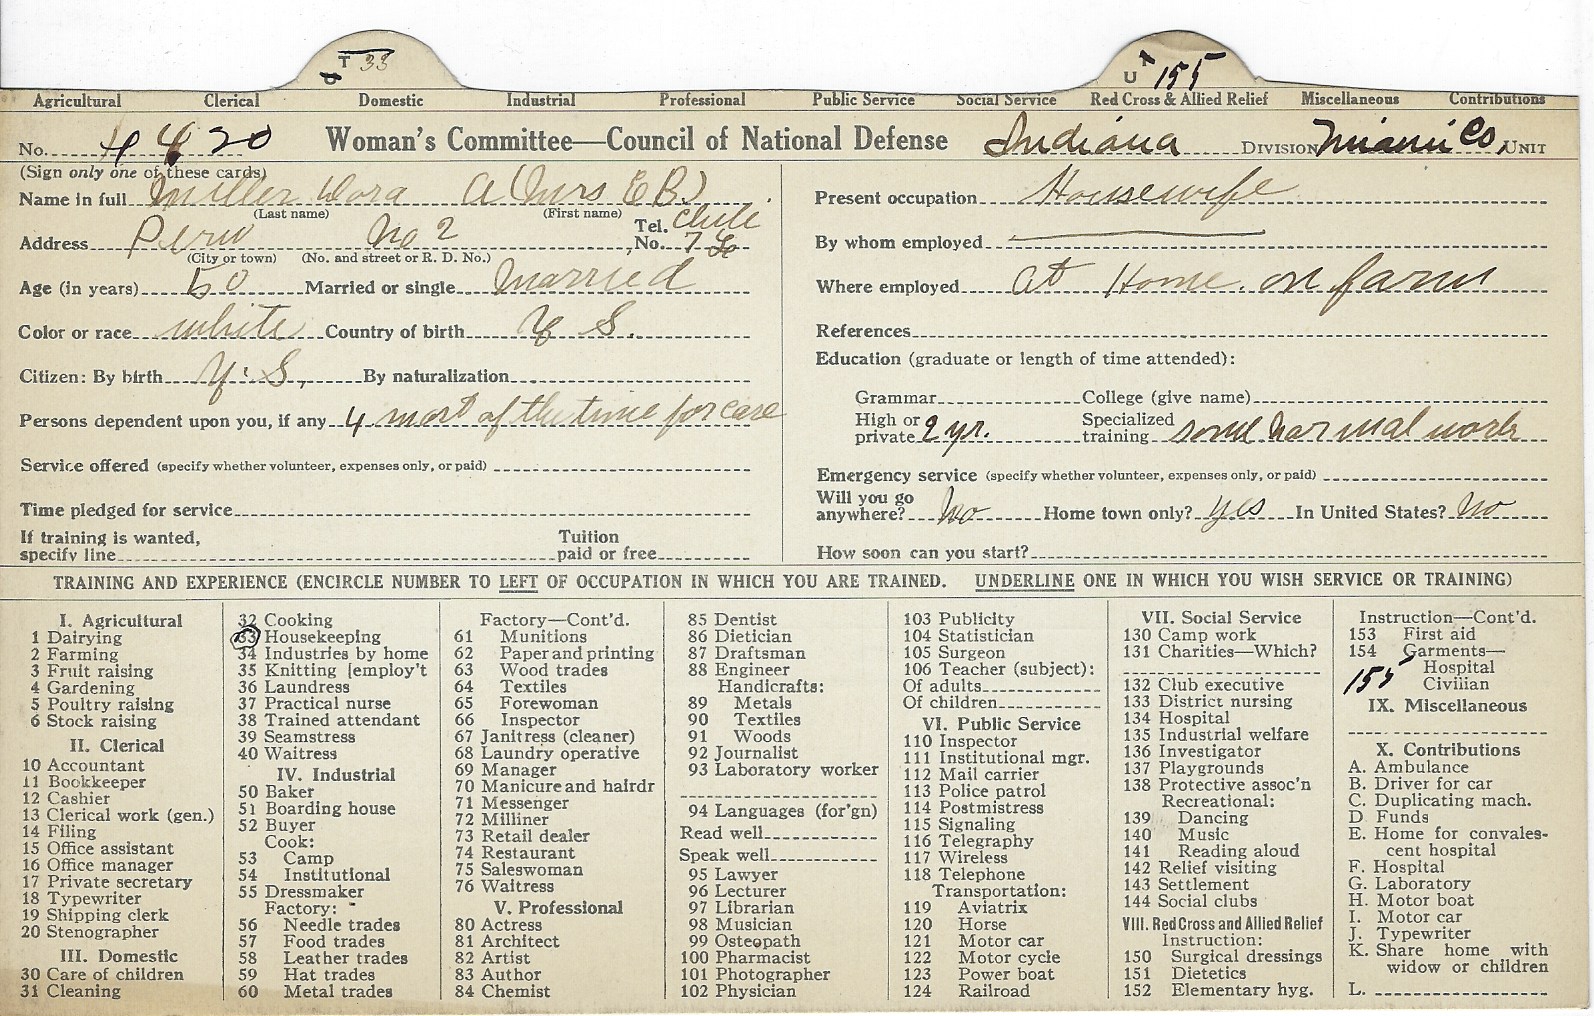 T 33
U 155
Agricultural Clerical Domestic Industrial Professional Public Service Social Service Red Cross & Allied Relief Miscellaneous Contributions
No. 4420 Woman's Committee—Council of National Defense Indiana DIVISION Miami Co, UNIT
(Sign only one of these cards)
Name in full Miller Dora A (Mrs E B)
(Last name) (First name)
Address Peru No 2 Tel. No. Chili 7
(City or town) (No. and street or R. D. No.)
Age (in years) 50 Married or single Married
Color or race white Country of birth U S.
Citizen: By birth U. S. By naturalization
Persons dependent upon you, if any 4 most of the time for care
Service offered (specify whether volunteer, expenses only, or paid)
Time pledged for service
If training is wanted, specify line Tuition paid or free
Present occupation Housewife
By whom employed
Where employed at Home on farm
References
Education (graduate or length of time attended):
Grammar College (give name)
High or private 2 yr. Specialized training some normal work
Emergency service (specify whether volunteer, expenses only, or paid)
Will you go anywhere? No Home town only? yes In United States? No
How soon can you start?
TRAINING AND EXPERIENCE (ENCIRCLE NUMBER TO LEFT OF OCCUPATION IN WHICH YOU ARE TRAINED. UNDERLINE ONE IN WHICH YOU WISH SERVICE OR TRAINING)
I. Agricultural
1 Dairying
2 Farming
3 Fruit raising
4 Gardening
5 Poultry raising
6 Stock raising
II. Clerical
10 Accountant
11 Bookkeeper
12 Cashier
13 Clerical work (gen.)
14 Filing
15 Office assistant
16 Office manager
17 Private secretary
18 Typewriter
19 Shipping clerk
20 Stenographer
III. Domestic
30 Care of children
31 Cleaning
32 Cooking
33 Housekeeping
34 Industries by home
35 Knitting [employ't
36 Laundress
37 Practical nurse
38 Trained attendant
39 Seamstress
40 Waitress
IV. Industrial
50 Baker
51 Boarding house
52 Buyer
Cook:
53 Camp
54 Institutional
55 Dressmaker
Factory:
56 Needle trades
57 Food trades
58 Leather trades
59 Hat trades
60 Metal trades
Factory—Cont'd.
61 Munitions
62 Paper and printing
63 Wood trades
64 Textiles
65 Forewoman
66 Inspector
67 Janitress (cleaner)
68 Laundry operative
69 Manager
70 Manicure and hairdr
71 Messenger
72 Milliner
73 Retail dealer
74 Restaurant
75 Saleswoman
76 Waitress
V. Professional
80 Actress
81 Architect
82 Artist
83 Author
84 Chemist
85 Dentist
86 Dietician
87 Draftsman
88 Engineer
Handicrafts:
89 Metals
90 Textiles
91 Woods
92 Journalist
93 Laboratory worker
94 Languages (for'gn)
Read well
Speak well
95 Lawyer
96 Lecturer
97 Librarian
98 Musician
99 Osteopath
100 Pharmacist
101 Photographer
102 Physician
103 Publicity
104 Statistician
105 Surgeon
106 Teacher (subject):
Of adults
Of children
VI. Public Service
110 Inspector
111 Institutional mgr.
112 Mail carrier
113 Police patrol
114 Postmistress
115 Signaling
116 Telegraphy
117 Wireless
118 Telephone
Transportation:
119 Aviatrix
120 Horse
121 Motor car
122 Motor cycle
123 Power boat
124 Railroad
VII. Social Service
130 Camp work
131 Charities—Which?
132 Club executive
133 District nursing
134 Hospital
135 Industrial welfare
136 Investigator
137 Playgrounds
138 Protective assoc'n
Recreational:
139 Dancing
140 Music
141 Reading aloud
142 Relief visiting
143 Settlement
144 Social clubs
VIII. Red Cross and Allied Relief
Instruction:
150 Surgical dressings
151 Dietetics
152 Elementary hyg.
Instruction—Cont'd.
153 First aid
154 Garments—
Hospital
155 Civilian
IX. Miscellaneous
X. Contributions
A. Ambulance
B. Driver for car
C. Duplicating mach.
D Funds
E. Home for convales-
cent hospital
F. Hospital
G. Laboratory
H. Motor boat
I. Motor car
J. Typewriter
K. Share home with
widow or children
L.